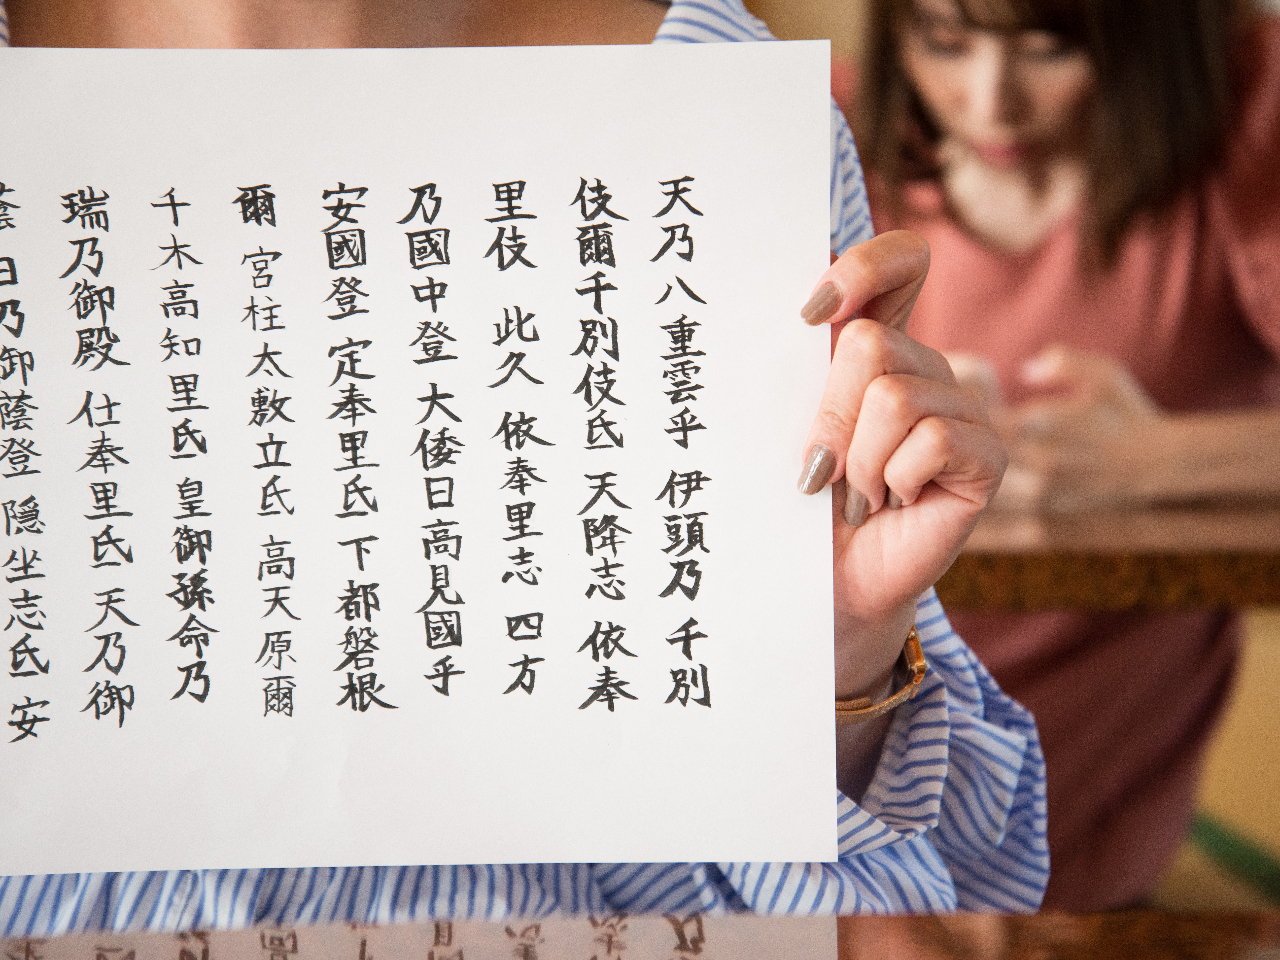 天乃八重雲乎 伊頭乃 千別
伎爾千別伎氐 天降志 依奉
里伎 此久 依奉里志 四方
乃國中登 大倭日高見國乎
安國登 定奉里氐 下都磐根
爾 宮柱太敷立氐 高天原爾
千木高知里氐 皇御孫命乃
瑞乃御殿 仕奉里氐 天乃御
蔭 日乃御蔭登 隠坐志氐 安